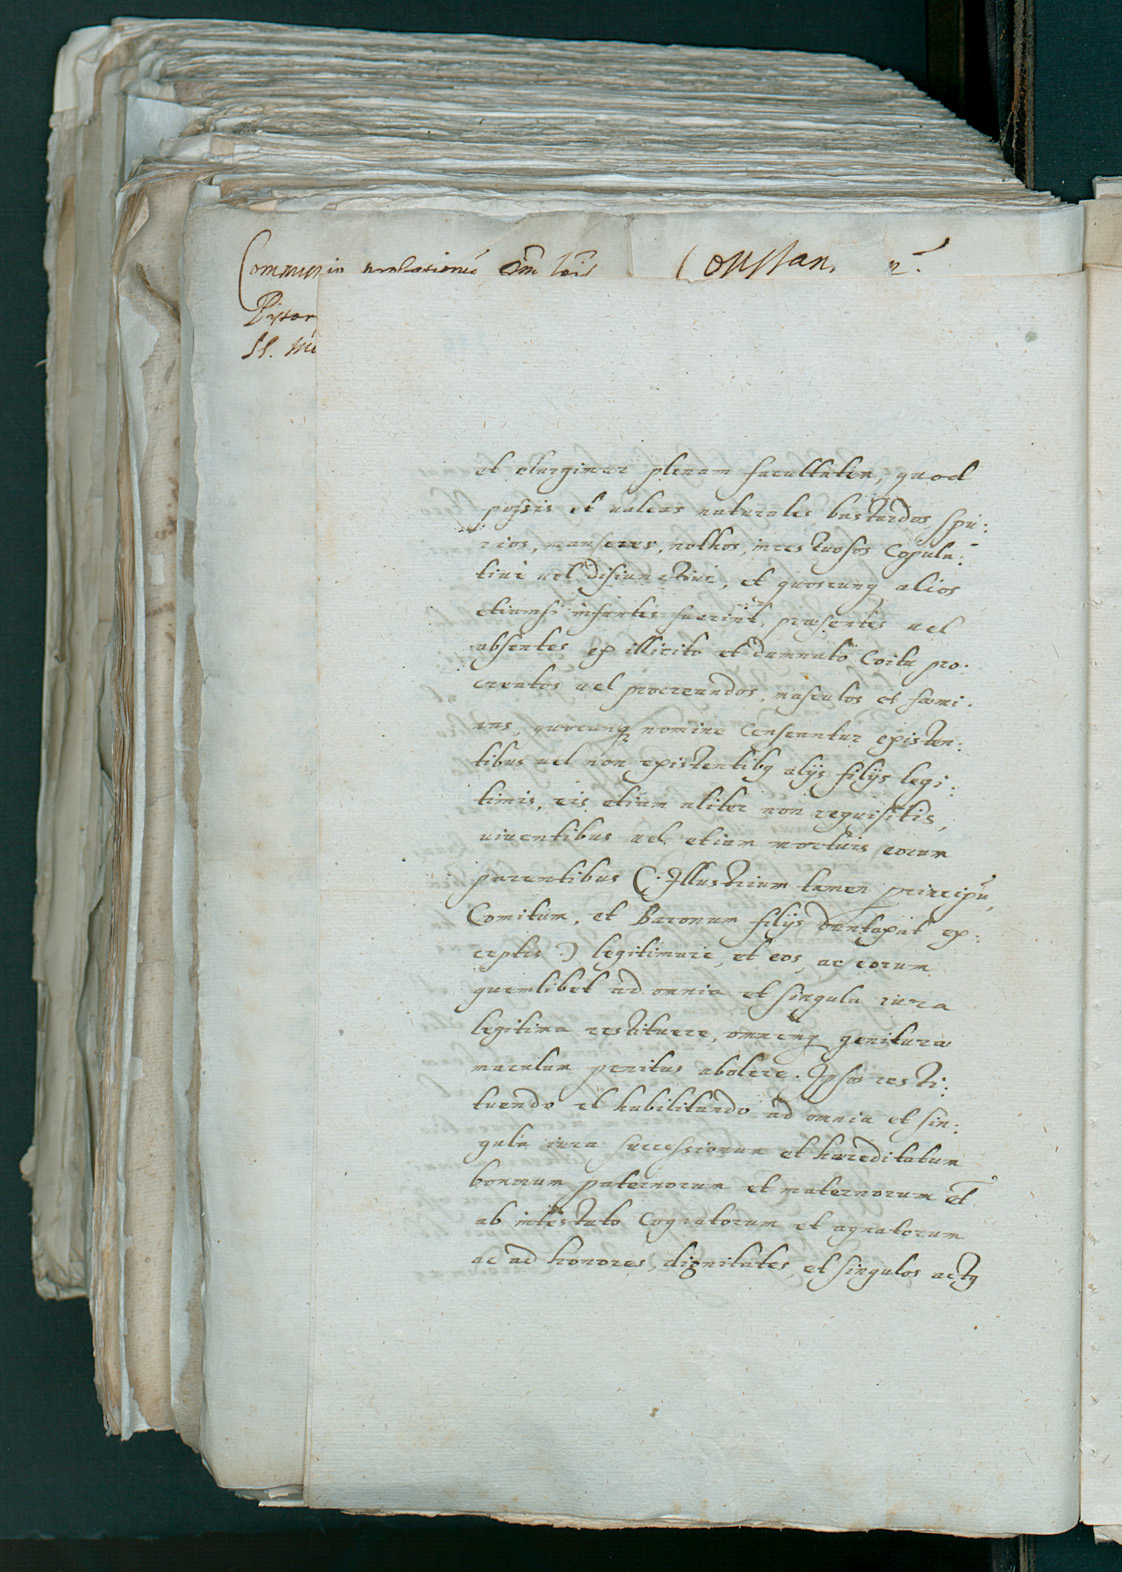 Commissio nullationis Constan. 2.
Pistor
SS. Me
et elargimur plenam facultatem, quod
possis et valeas naturales bastardos, spu:
rios, manseres, nothos, incestuosos Copula:
tiuè uel disiunctiuè, et quoscunq alios
etiamsi infantes fuerint, præsentes uel
absentes ex illicito et damnato Coitu pro.
creatos uel procreandos, masculos et fæmi.
nas, quocunq nomine Censeantur existen:
tibus uel non existentibq alijs filijs legi:
timis, eis etiam aliter non requisitis,
uiuentibus uel etiam mortuis eorum
parentibus (: Illustrium tamen principū,
Comitum, et Baronum filijs dentaxat ex:
ceptis :) legitimare, et eos, ac eorum
quemlibet ad omnia et singula iura
legitima restituere, omnemq geniturae
maculam penitus abolere. Ipsos resti:
tuendo et habilitando ad omnia et sin:
gula iura successionum et hæreditatum
bonorum paternorum et maternorum et
ab intestato Cognatorum et agnatorum
ac ad honores, dignitates, et singulos actq